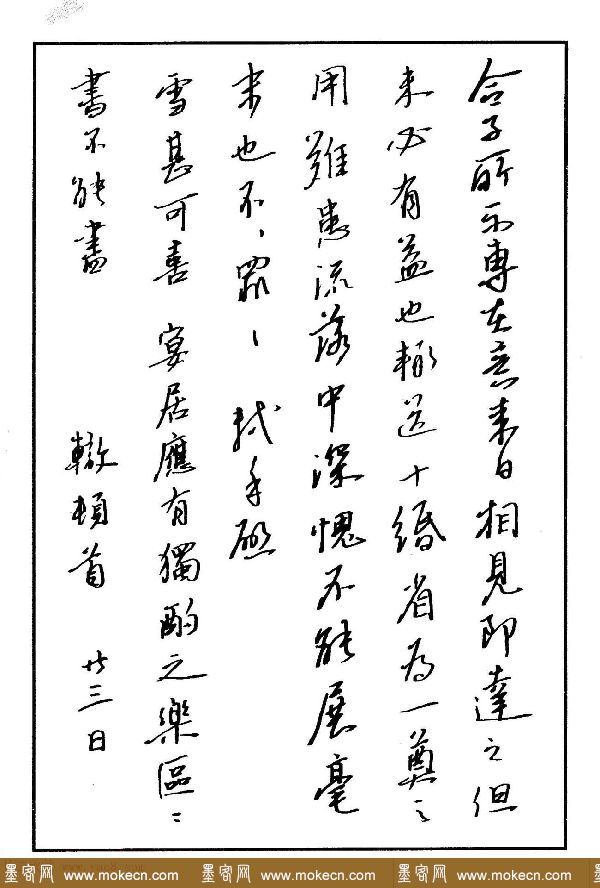 令子所示專在意来日相見即達之但
未必有益也輒送十緡省為一奠之
用難患流落中深愧不能展毫
末也不、罪、 軾手啟
雪甚可喜 宴居應有獨酌之樂區、
書不能盡 轍頓首 廿三日
墨客网 www.mokecn.com 墨客网 www.mokecn.com 墨客网 www.mokecn.com